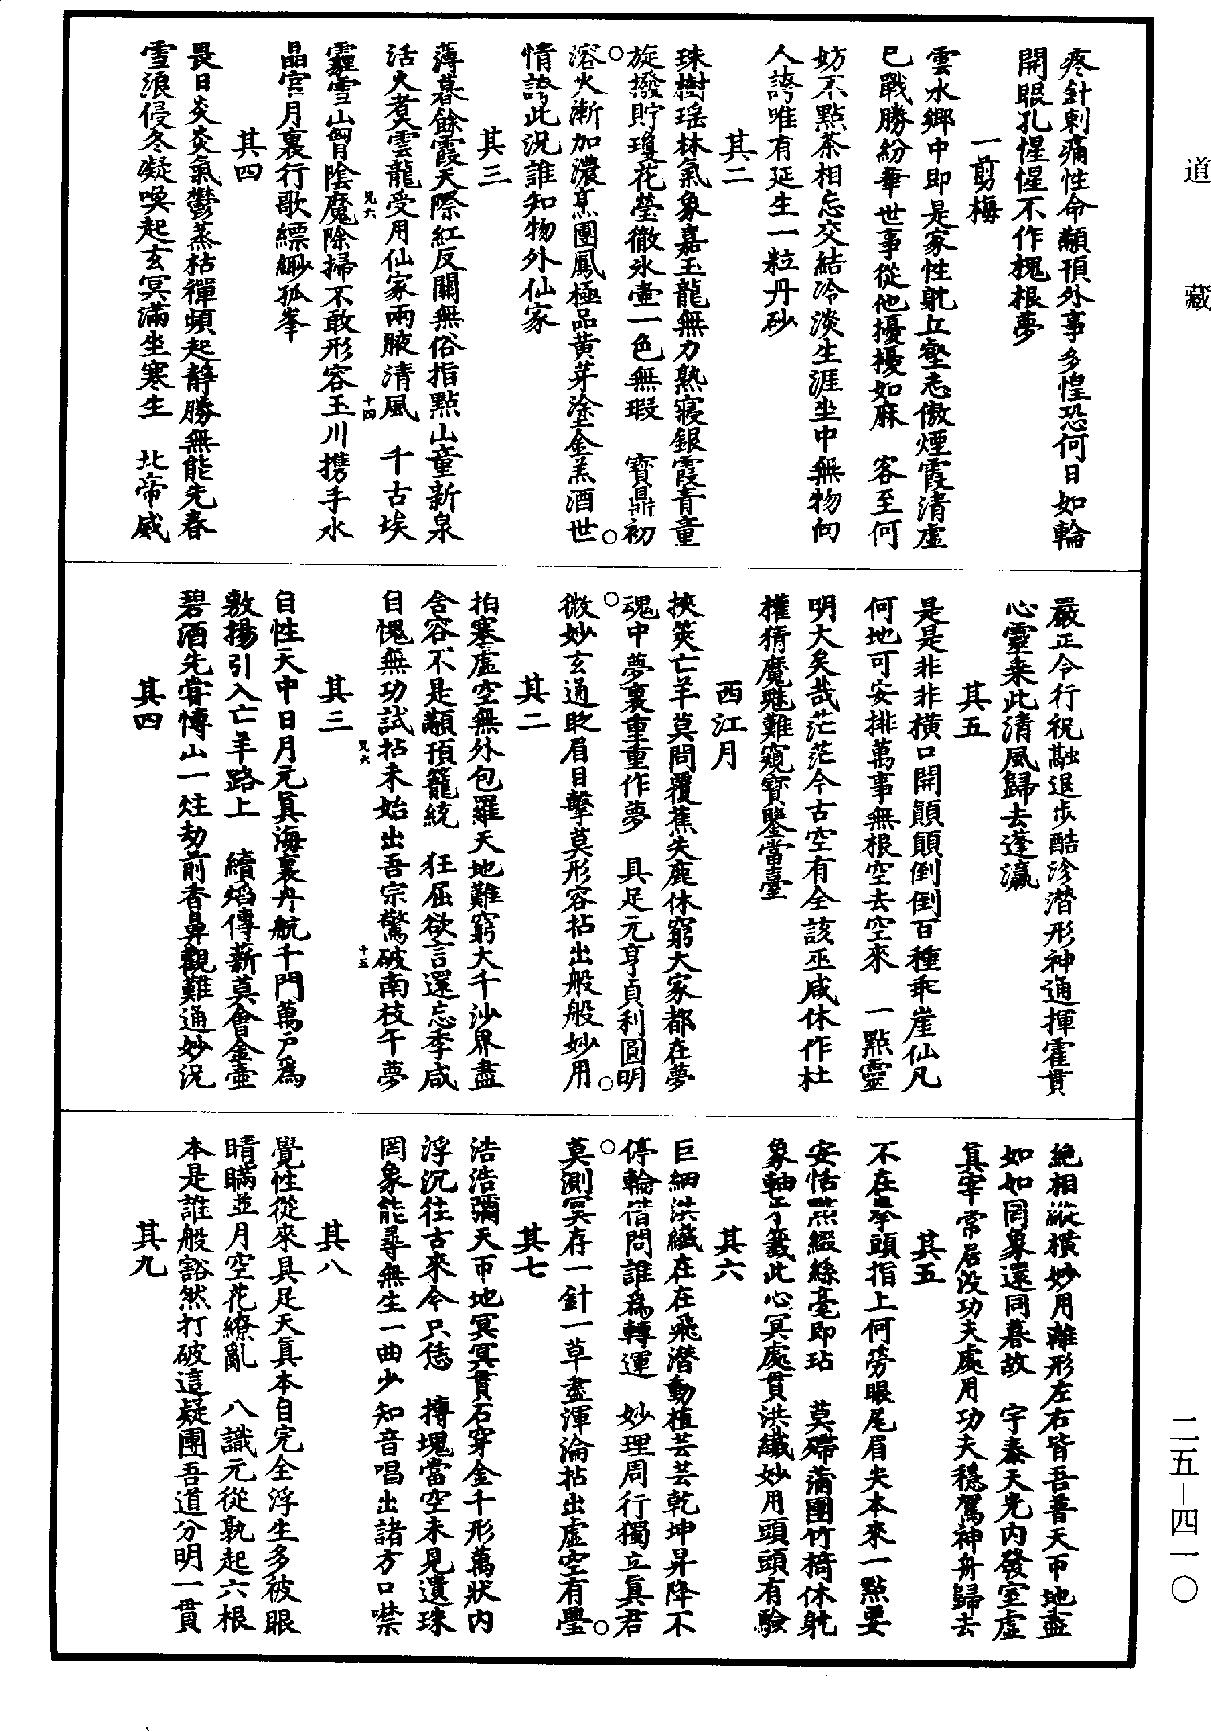 道藏
疼針刺痛性命顢頇外事多惶恐何日如輪
開眼孔惺惺不作槐根夢
一剪梅
雲水鄉中即是家性躭丘壑志傲煙霞清虛
已戰勝紛華世事從他擾擾如麻　客至何
妨不點茶相忘交結冷淡生涯坐中無物向
人誇唯有延生一粒丹砂
其二
珠樹瑤林氣象嘉玉龍無力熟寢銀霞青童
旋撥貯瓊花瑩徹氷壷一色無瑕　寳鼎初
溶火漸加濃烹團鳳極品黃芽塗金羔酒世
情誇此況誰知物外仙家
其三
薄暮餘霞天際紅反關無俗指點山童新泉
活火煮雲龍受用仙家兩腋清風　千古埃
霾雪山胷陰魔除掃不敢形容玉川携手水
晶宮月裏行歌縹緲孤峯
其四
畏日炎炎氣鬱蒸枯禪頻起靜勝無能先春
雪浪侵冬凝喚起玄冥滿坐寒生　北帝威
嚴正令行祝融退步酷沴潛形神通揮霍貫
心靈来此清風歸去蓬瀛
其五
是是非非橫口開顛顛倒倒百種乖崖仙凡
何地可安排萬事無根空去空來　一點靈
明大矣哉茫茫今古空有全該巫咸休作杜
權猜魔魅難窺寳鑒當臺
西江月
挾筴亡羊莫問覆蕉失鹿休窮大家都在夢
魂中夢裏重重作夢　具足元亨貞利圓明
微妙玄通眨眉目擊莫形容拈出般般妙用
其二
拍塞虛空無外包羅天地難窮大千沙界盡
含容不是顢頇籠統　狂屈欲言還忘季咸
自愧無功試拈未始出吾宗驚破南枝午夢
其三
自性天中日月元眞海裏丹航千門萬户爲
敷揚引入亡羊路上　續焰傳薪莫會金壷
碧酒先嘗博山一炷劫前香鼻觀難通妙況
其四
絶相縱橫妙用離形左右皆吾普天帀地盡
如如罔象還同暮故　宇泰天光內發室虛
眞宰常居没功夫處用功夫穩駕神舟歸去
其五
不在拳頭指上何勞眼尾眉尖本來一點要
安恬㸃綴絲毫即玷　莫殢蒲團竹椅休躭
象軸牙籤此心冥處貫洪纖妙用頭頭有驗
其六
巨細洪纖在在飛潛動植芸芸乾坤昇降不
停輪借問誰爲轉運　妙理周行獨立眞君
莫測冥存一針一草盡渾淪拈出虛空有舋
其七
浩浩彌天帀地冥冥貫石穿金千形萬狀內
浮沉往古來今只恁　摶塊當空未見遺珠
罔象能尋無生一曲少知音唱出諸方口噤
其八
覺性從來具足天眞本自完全浮生多被眼
睛瞞並月空花繚亂　八識元從孰起六根
本是誰般豁然打破這疑團吾道分明一貫
其九
皃六
十四
皃六
十五
二五—四一〇